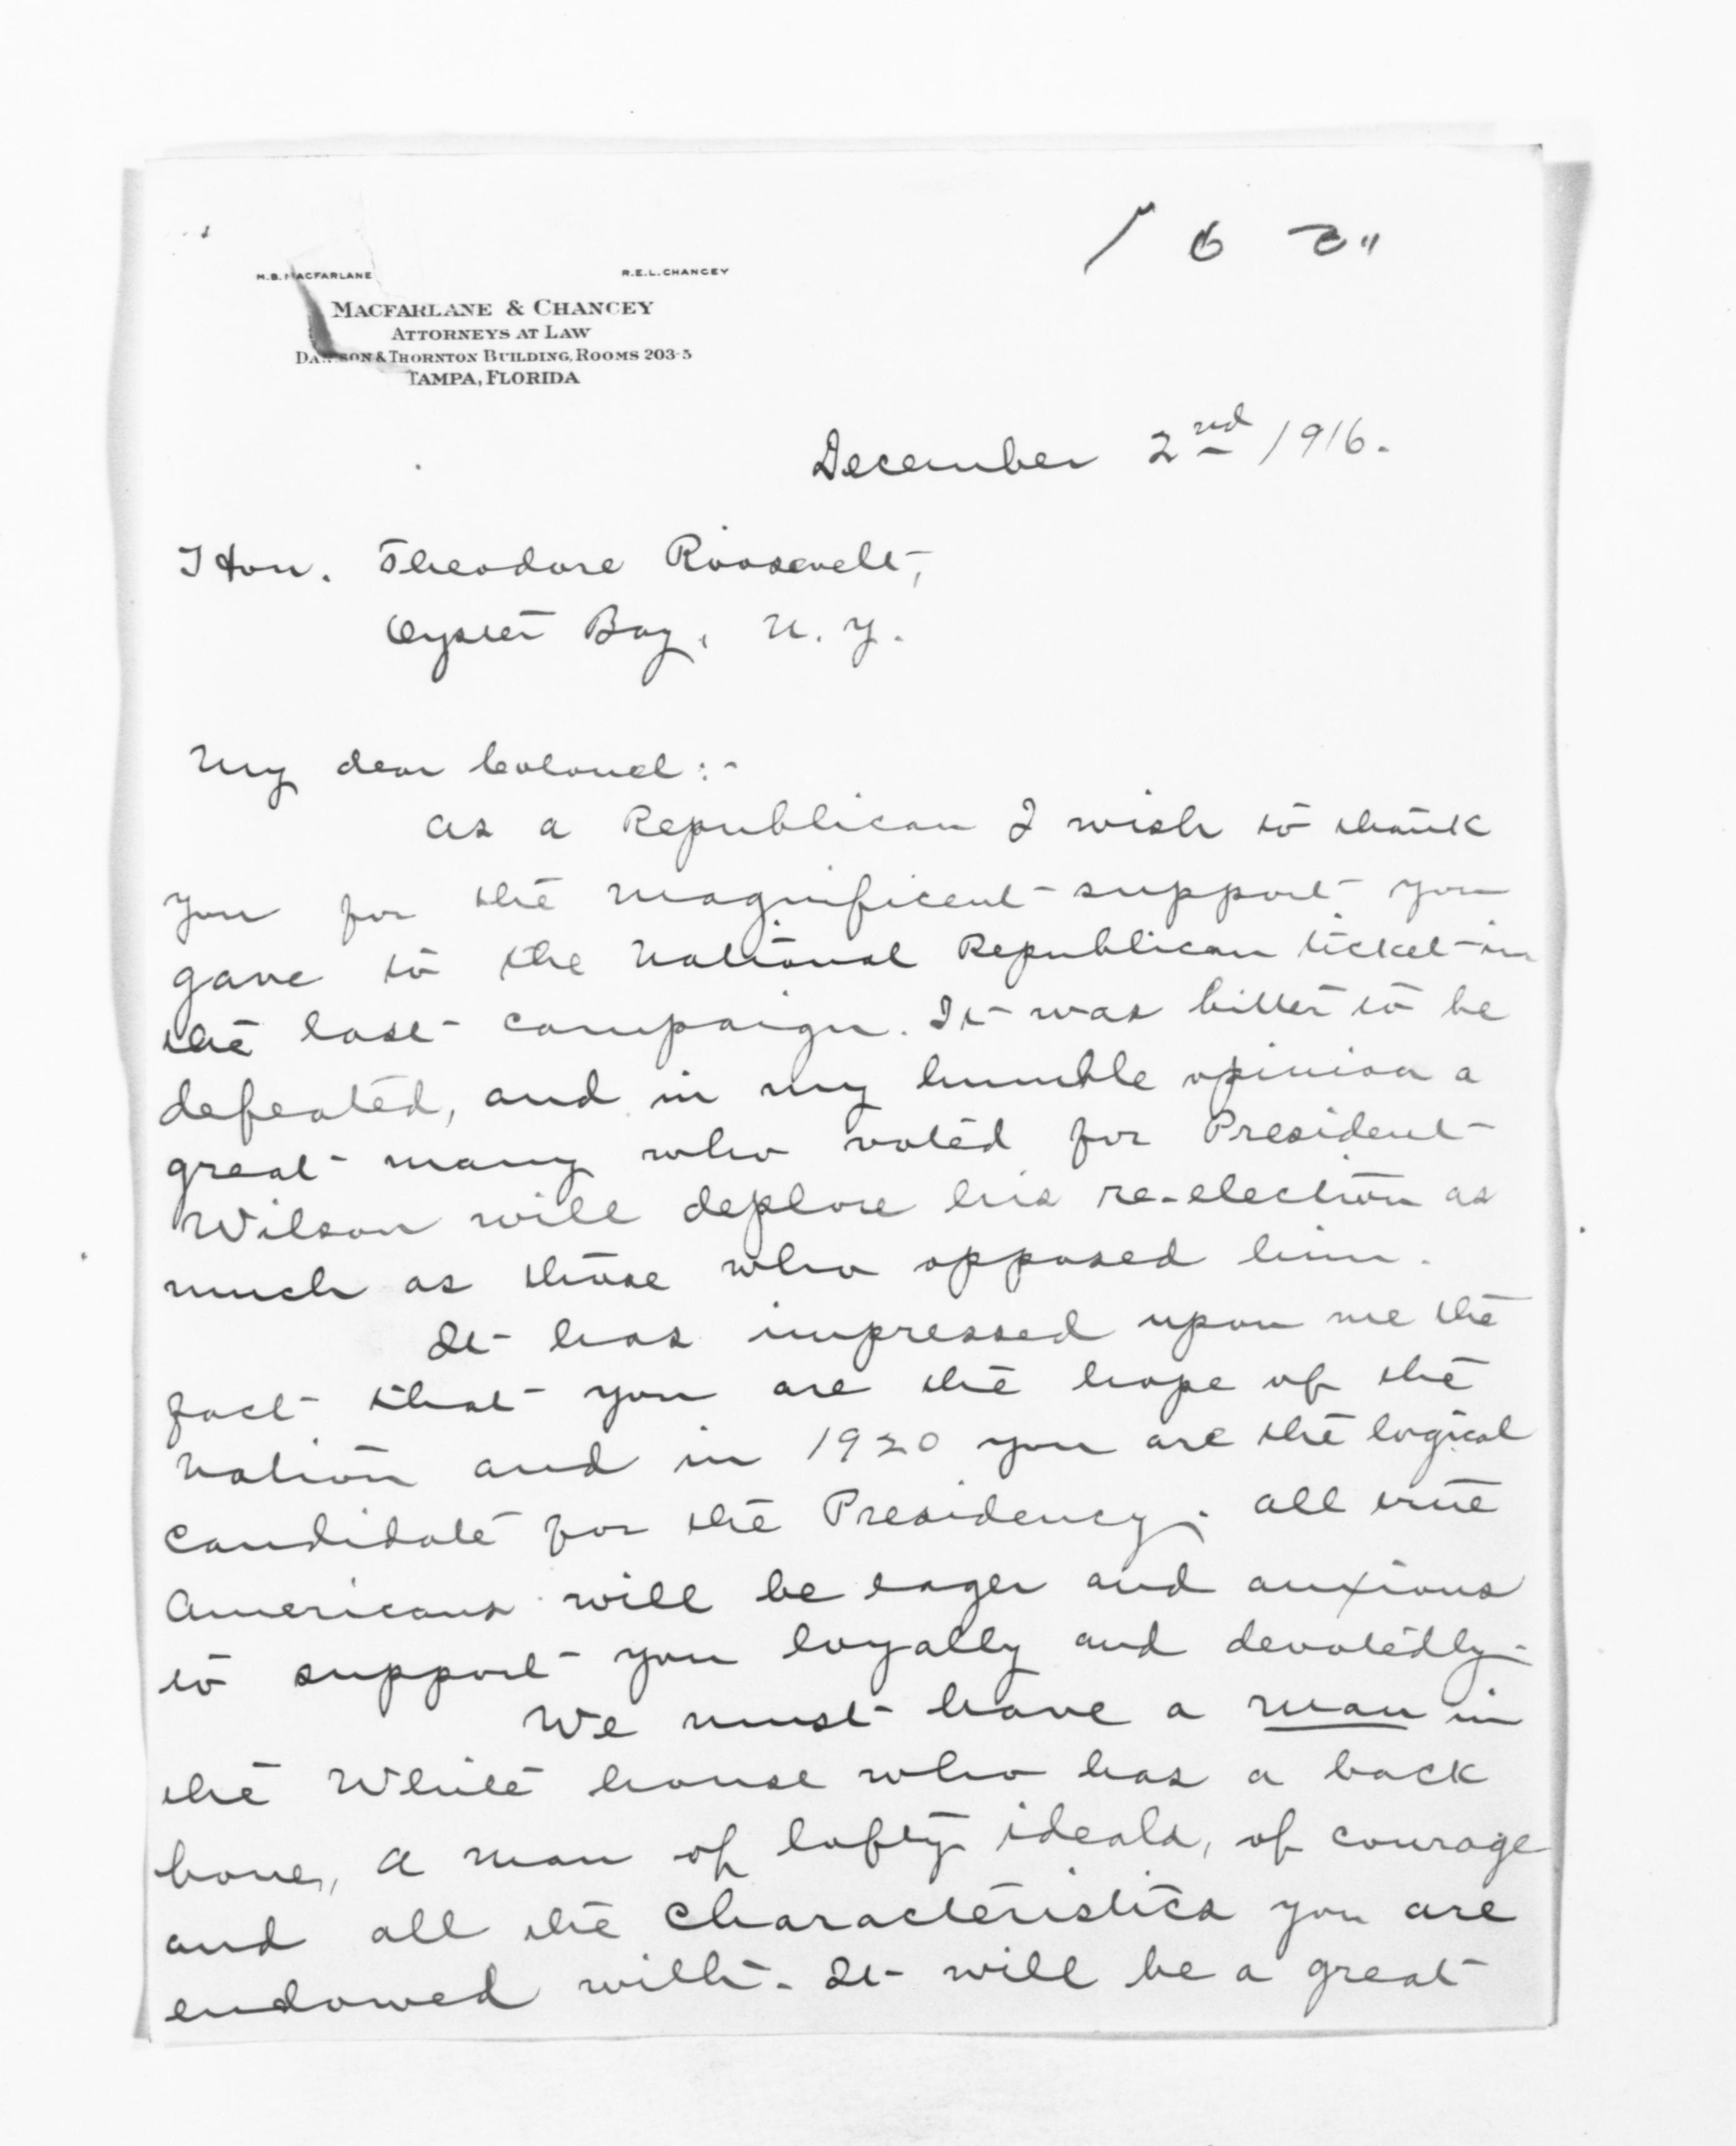 H.B. MACFARLANE R.E.L. CHANCEY
MACFARLANE & CHANCEY
ATTORNEYS AT LAW
& THORNTON BUILDING, ROOMS 203-5
TAMPA, FLORIDA
December 2nd 1916.
Hon. Theodore Roosevelt,
Oyster Bay, N. Y.
My dear Colonel:-
As a Republican I wish to thank
you for the magnificent support you
gave to the National Republican ticket in
the last campaign. It was bitter to be
defeated, and in my humble opinion a
great many who voted for President
Wilson will deplore his re-election as
much as those who opposed him.
It has impressed upon me the
fact that you are the hope of the
Nation and in 1920 you are the logical
candidate for the Presidency. All true
Americans will be eager and anxious
to support you loyally and devotedly.
We must have a man in
the White house who has a back
bone, a man of lofty ideals, of courage
and all the characteristics you are
endowed with. It will be a great